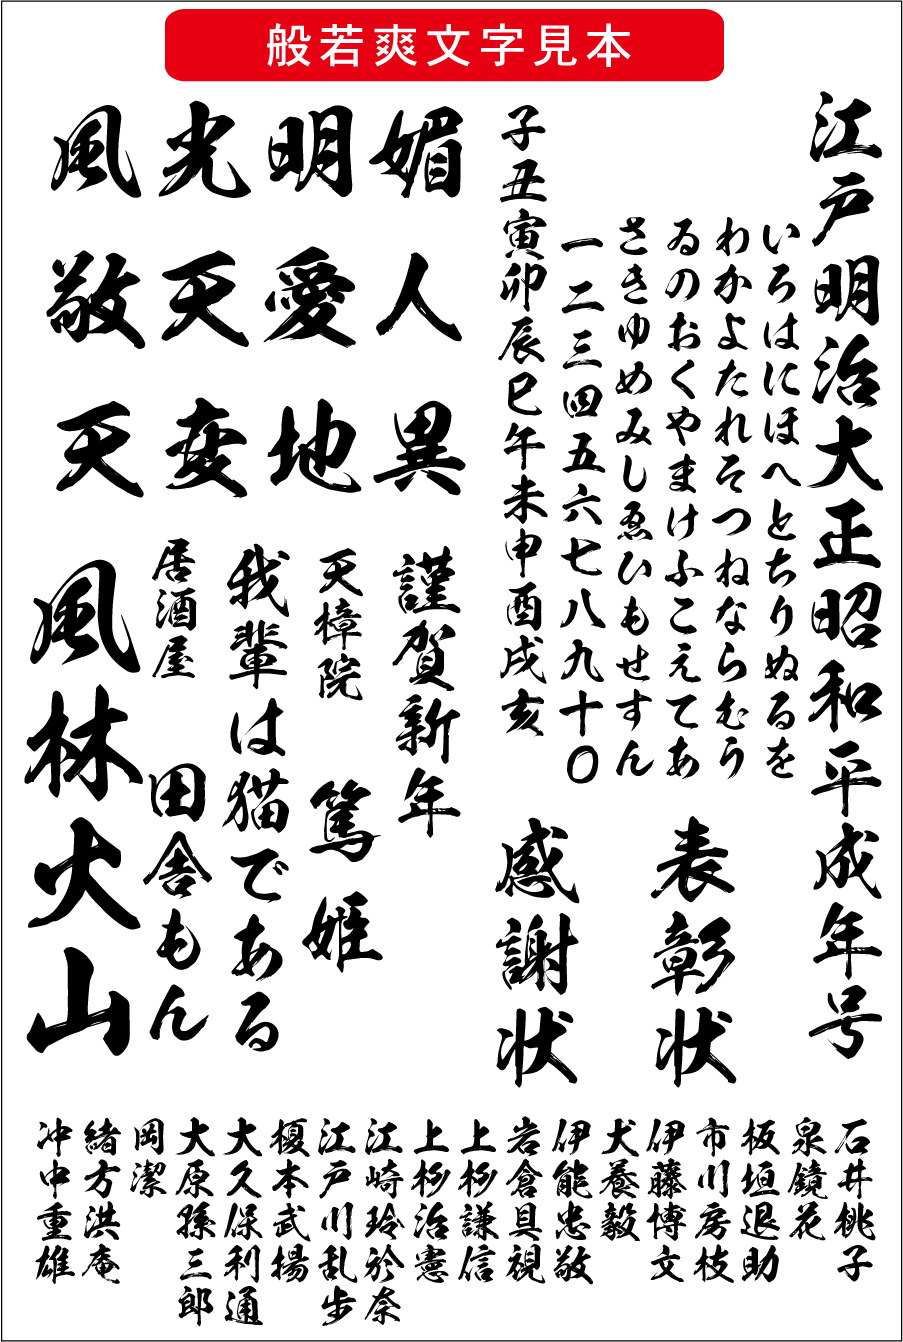 般若爽文字見本
江戸明治大正昭和平成年号
いろはにほへとちりぬるを
わかよたれそつねならむう
ゐのおくやまけふこえてあ
さきゆめみしゑひもせすん
一二三四五六七八九十〇
子丑寅卯辰巳午未申酉戌亥
表彰状
感謝状
媚人異
明愛地
光天変
風敬天
謹賀新年
天樟院
篤姫
我輩は猫である
居酒屋
田舎もん
風林火山
石井桃子
泉鏡花
板垣退助
市川房枝
伊藤博文
犬養毅
伊能忠敬
岩倉具視
上杉謙信
上杉治憲
江崎玲於奈
江戸川乱歩
榎本武揚
大久保利通
大原孫三郎
岡潔
緒方洪庵
沖中重雄